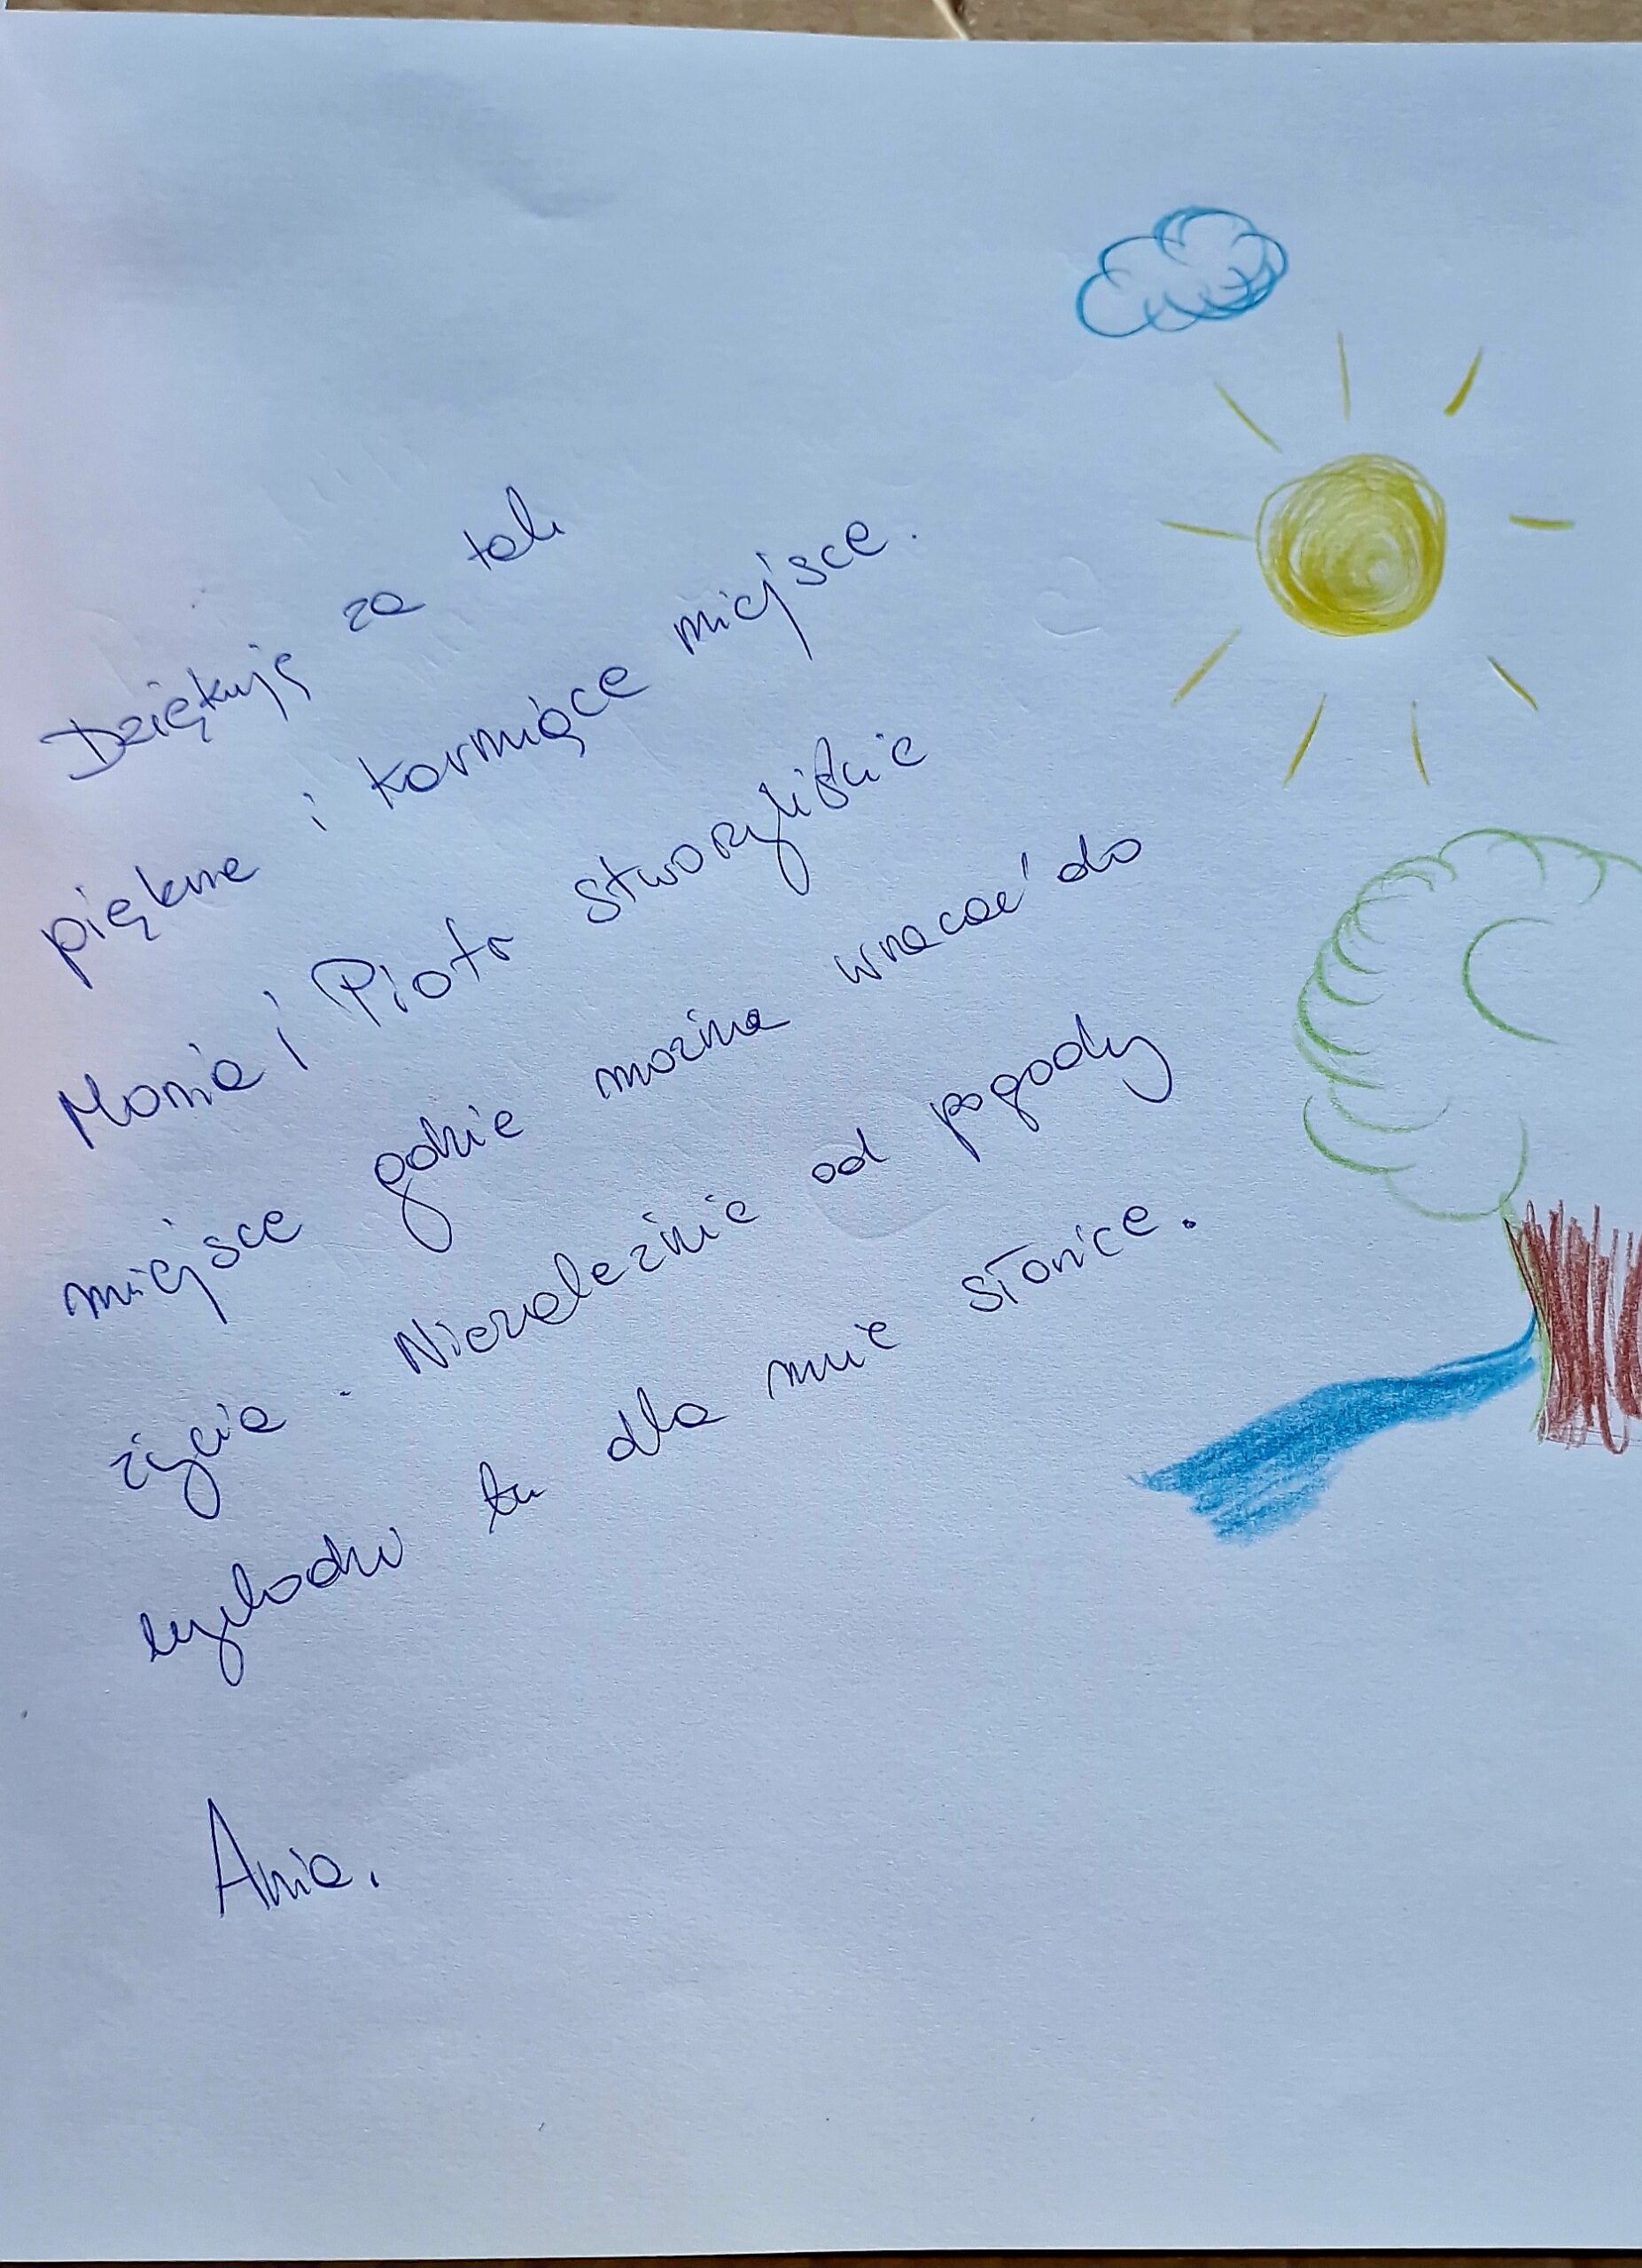 Dziękuję za tak
piękne i karmiące miejsce.
Monia i Piotr stworzyliście
miejsce gdzie można wracać do
życia. Niezależnie od pogody
wychodzi tu dla mnie słońce.
Ania.